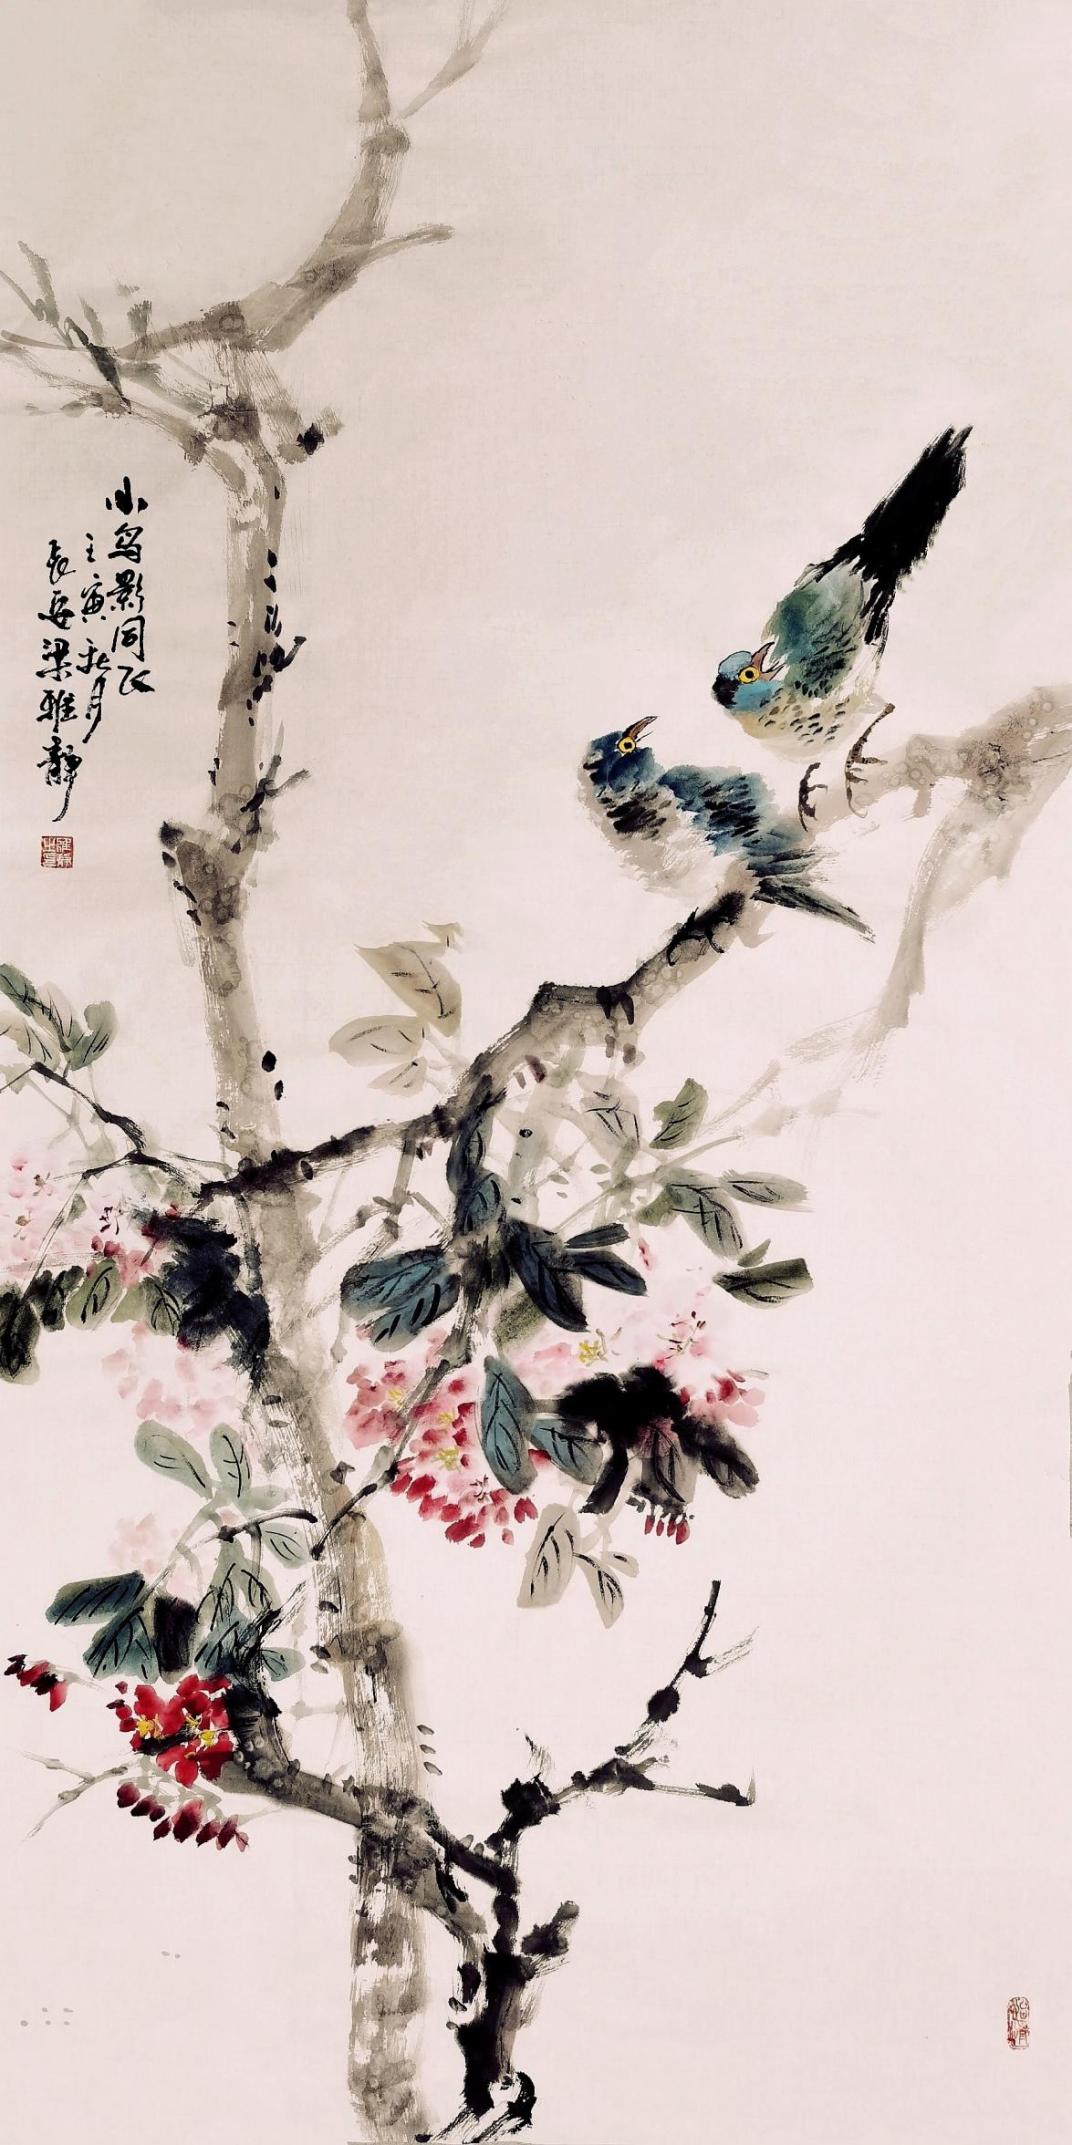 小鸟影同飞
壬寅秋月
长安梁雅静